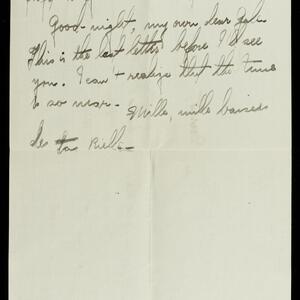 Good-night, my own dear
This is the last letter before I'll see
you. I can't realize that the time
is so near-
Mille, mille baisers
de ta